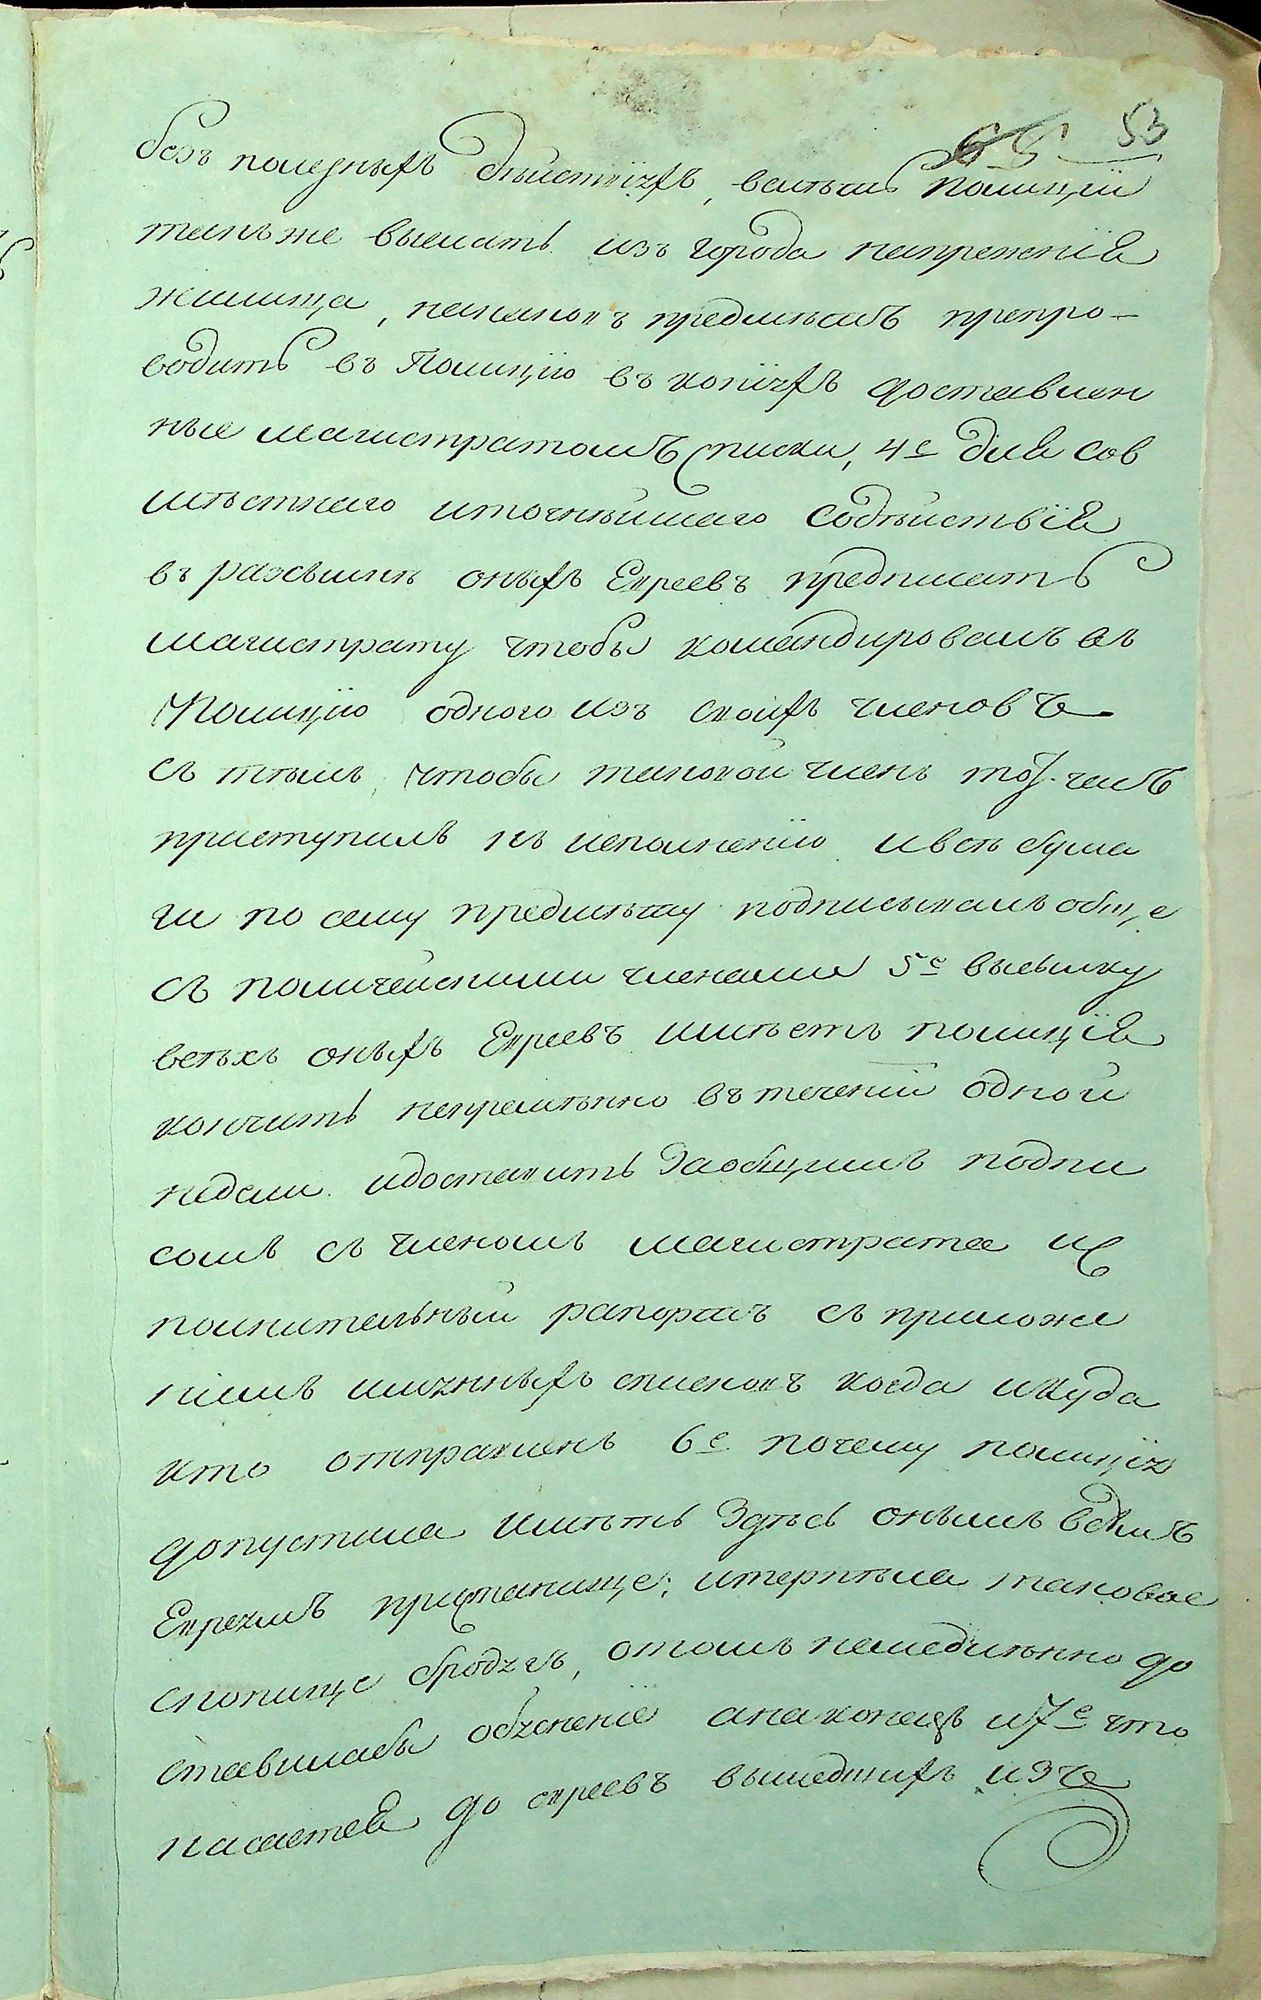 65 53
безъ полезныхъ дѣйствіяхъ, велѣть Полиціи
такъ же выслать изъ города напрежнія
жилища, каковой предметъ препро-
водить въ Полицію въ копіяхъ доставлен
ные магистратомъ списки, 4е для сов
мѣстнаго иточнѣйшаго Содѣйствія
въ разсылкѣ оныхъ Евреевъ предписать
магистрату чтобы командировалъ въ
Полицію одного изъ своихъ членовъ
съ тѣмъ, чтобы таковой членъ тот.часъ
приступилъ къ исполненію ивсѣ бума
ги по сему предмѣту подписывалъ общ,е
съ полицейскими членами 5е высылку
всѣхъ оныхъ Евреевъ имѣетъ полиція
кончить непремѣнно въ теченіи одной
недели идоставить Заобщимъ подпи
сомъ съ членомъ магистрата ис
полнительный рапортъ съ приложе
ніемъ имянныхъ списковъ когда икуда
кто отправленъ 6е почему полиція
допустила имѣть Здѣсь онымъ всѣмъ
Евреямъ пристанище; итерпѣла таковое
скопище бродягъ, отомъ немедлѣнно до
ставилабы обясненіе анаконецъ и7е что
касается до евреевъ вышедшихъ изъ